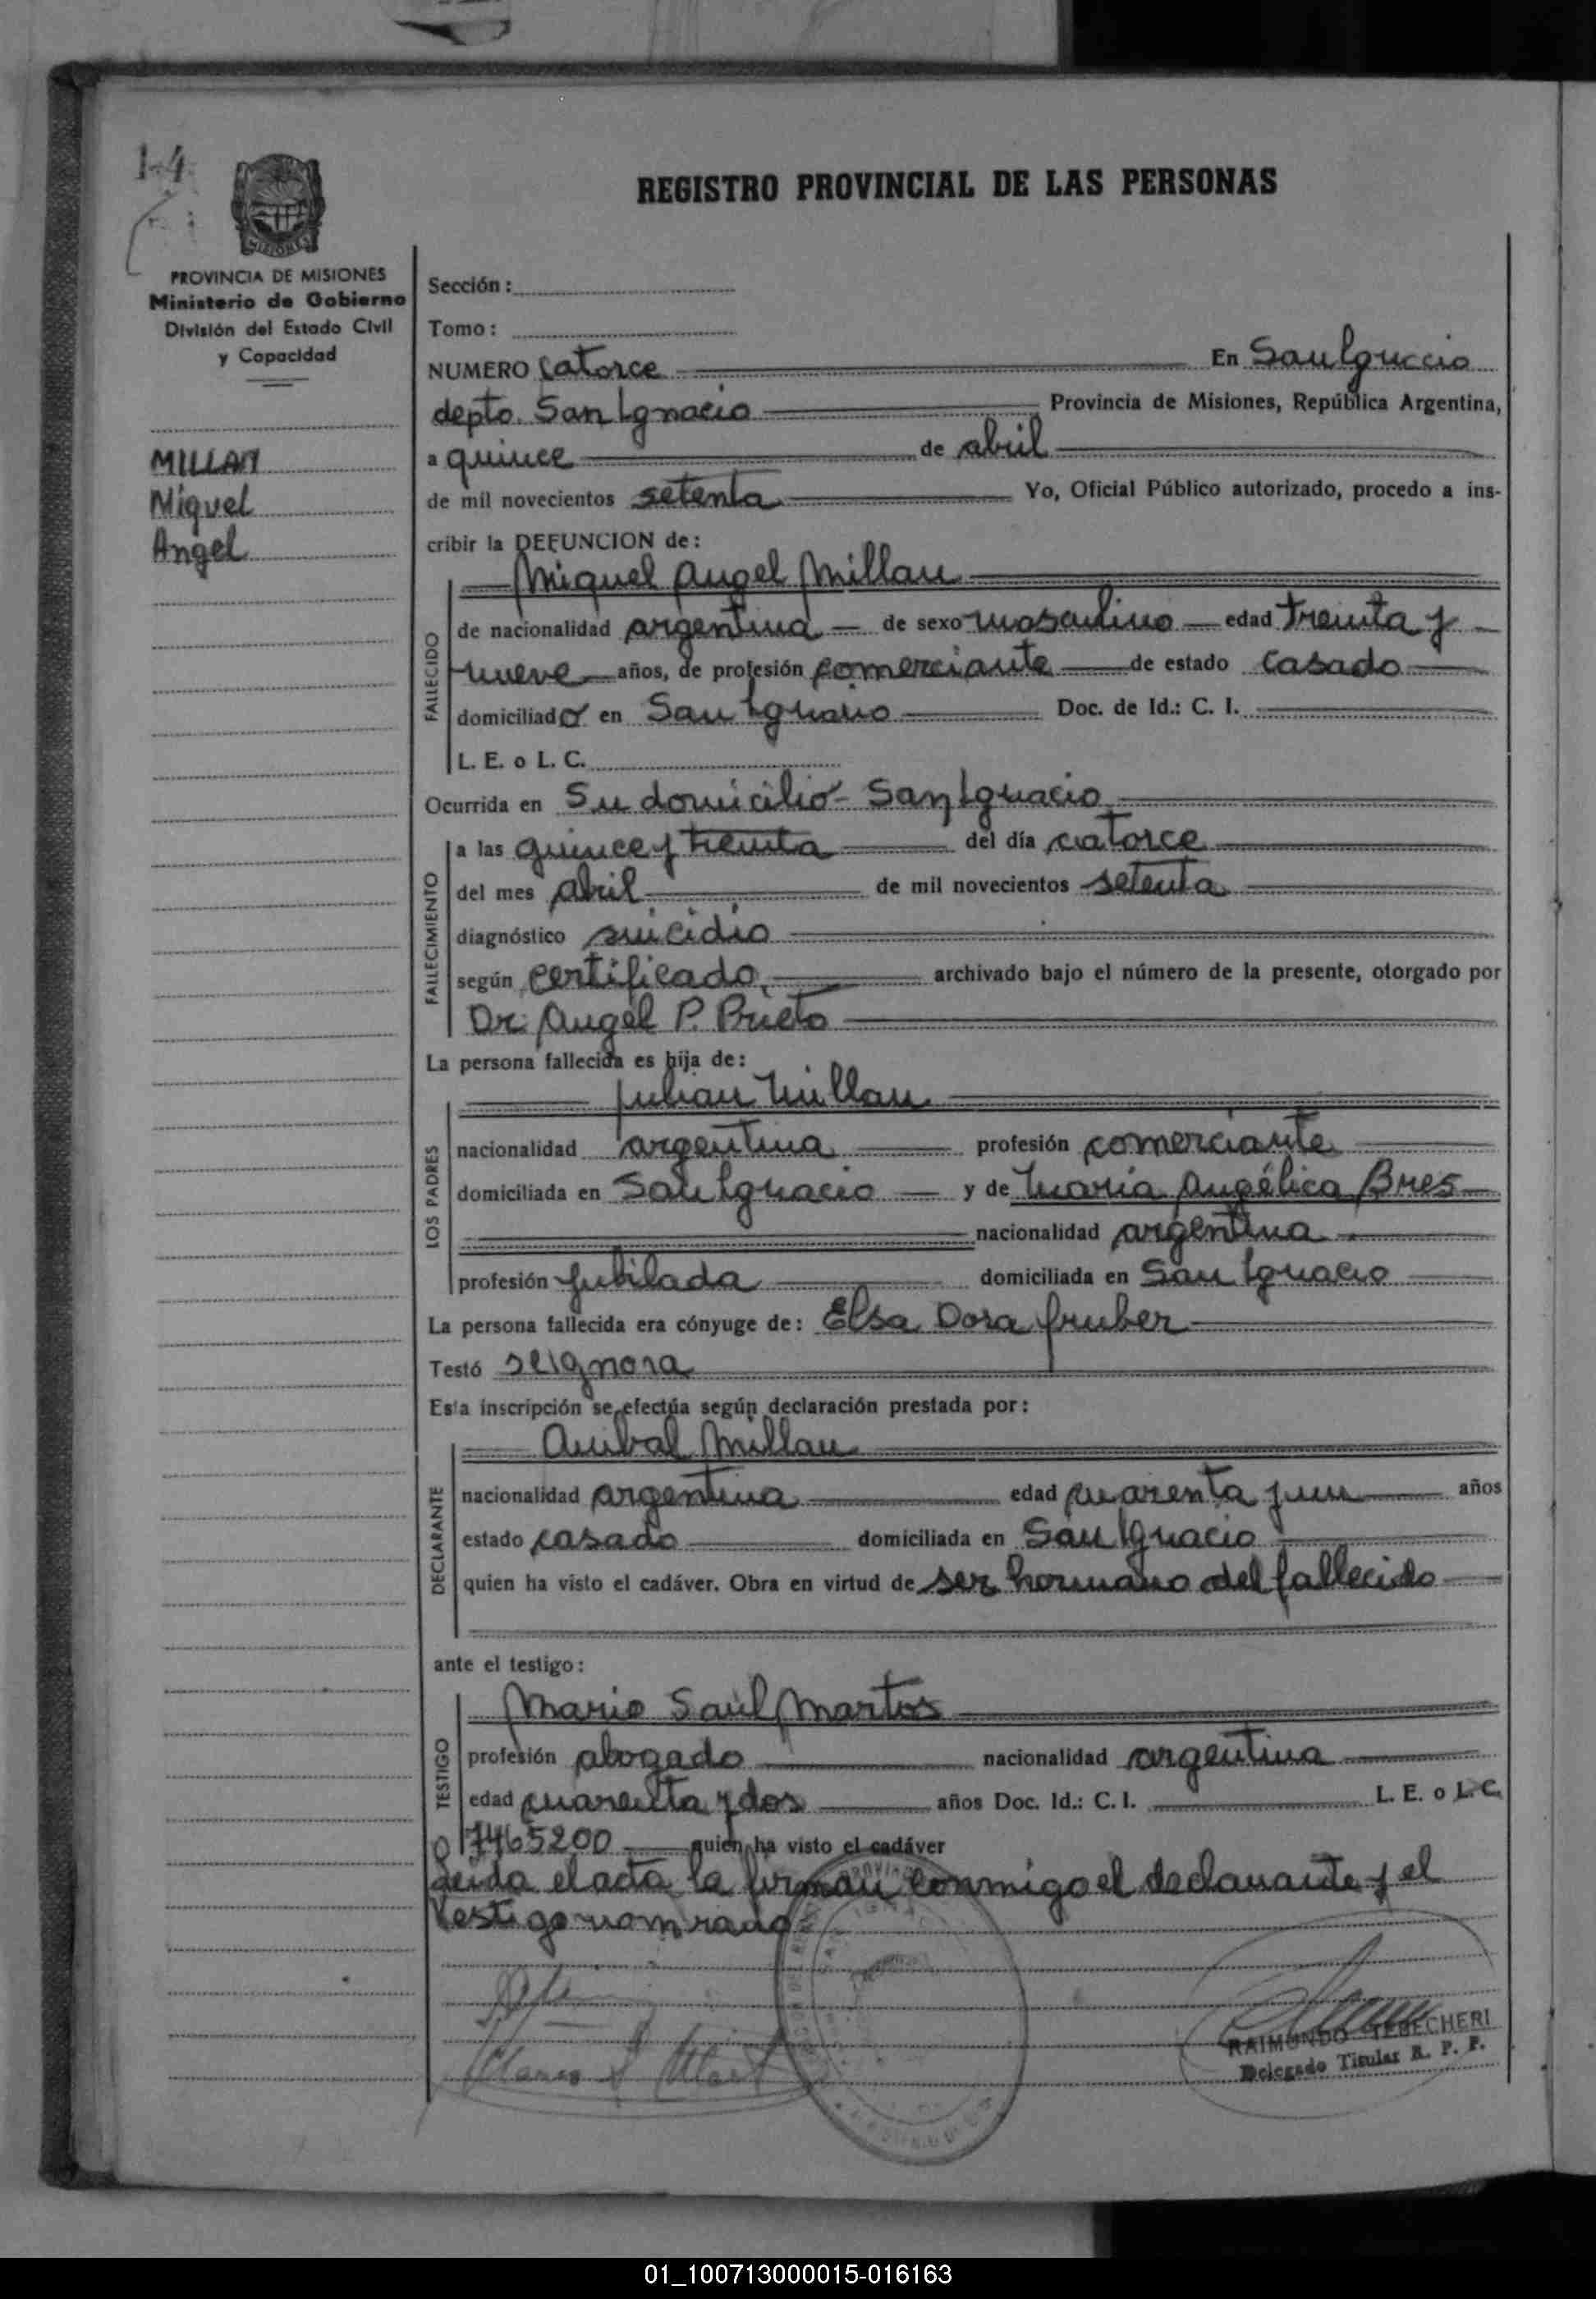 14
REGISTRO PROVINCIAL DE LAS PERSONAS
MISIONES
PROVINCIA DE MISIONES
Ministerio de Gobierno
División del Estado Civil
y Capacidad
MILLAN
Miguel
Angel
Sección:
Tomo:
NUMERO catorce En San Ignacio
depto. San Ignacio Provincia de Misiones, República Argentina,
a quince de abril
de mil novecientos setenta Yo, Oficial Público autorizado, procedo a ins-
cribir la DEFUNCION de:
Miguel Angel Millan
FALLECIDO
de nacionalidad argentina de sexo masculino edad treinta y
nueve años, de profesión comerciante de estado casado
domiciliado en San Ignacio Doc. de Id.: C. I.
L. E. o L. C.
Ocurrida en Su domicilio - San Ignacio
FALLECIMIENTO
a las quince y treinta del día catorce
del mes abril de mil novecientos setenta
diagnóstico suicidio
según certificado, archivado bajo el número de la presente, otorgado por
Dr. Angel P. Prieto
La persona fallecida es hija de:
Julian Millan
LOS PADRES
nacionalidad argentina profesión comerciante
domiciliada en San Ignacio y de María Angélica Bres
nacionalidad argentina
profesión Jubilada domiciliada en San Ignacio
La persona fallecida era cónyuge de: Elsa Dora Gruber
Testó se ignora
Esta inscripción se efectúa según declaración prestada por:
Anibal Millan
DECLARANTE
nacionalidad argentina edad cuarenta y un años
estado casado domiciliada en San Ignacio
quien ha visto el cadáver. Obra en virtud de ser hermano del fallecido
ante el testigo:
Mario Saúl Martos
TESTIGO
profesión abogado nacionalidad argentina
edad cuarenta y dos años Doc. Id.: C. I. L. E. o L. C.
7465200 quien ha visto el cadáver
Leida el acta, la firman conmigo el declarante y el
testigo
RAIMUNDO TEBECHERI
Delegado Titular R. P. P.
01_100713000015-016163